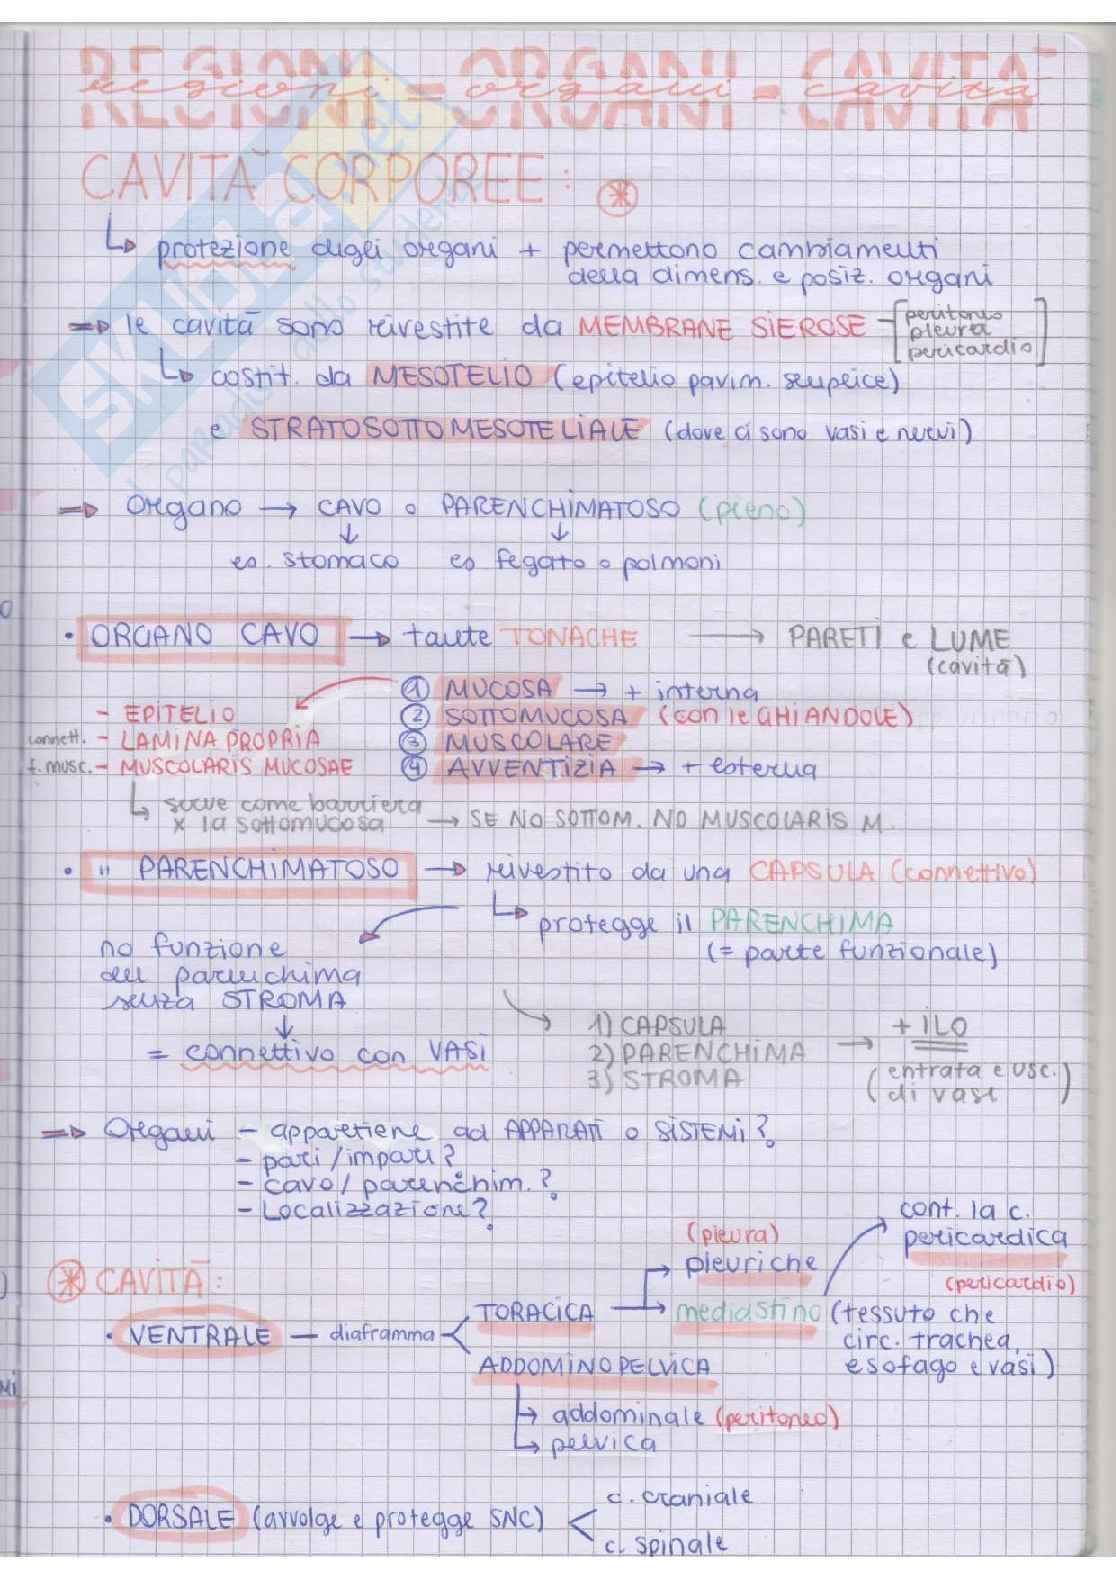 REGIONI - ORGANI - CAVITÀ
regioni - organi - cavità
CAVITÀ CORPOREE: *
↳ protezione degli organi + permettono cambiamenti
della dimens. e posiz. organi
⇒ le cavità sono rivestite da MEMBRANE SIEROSE - [peritoneo
pleura
pericardio]
↳ costit. da MESOTELIO (epitelio pavim. semplice)
e STRATO SOTTOMESOTELIALE (dove ci sono vasi e nervi)
⇒ Organo → CAVO o PARENCHIMATOSO (pieno)
↓ ↓
es. stomaco es fegato o polmoni
• ORGANO CAVO → tante TONACHE → PARETI e LUME
(cavità)
① MUCOSA → + interna
- EPITELIO ② SOTTOMUCOSA (con le GHIANDOLE)
connett. - LAMINA PROPRIA ③ MUSCOLARE
f. musc. - MUSCOLARIS MUCOSAE ④ AVVENTIZIA → + esterna
↳ serve come barriera
x la sottomucosa → SE NO SOTTOM. NO MUSCOLARIS M.
• " PARENCHIMATOSO → rivestito da una CAPSULA (connettivo)
↳ protegge il PARENCHIMA
(= parte funzionale)
no funzione
del parenchima
senza STROMA
↓
= connettivo con VASI
1) CAPSULA
2) PARENCHIMA → + ILO
3) STROMA (entrata e usc.
di vasi)
⇒ Organi - appartiene ad APPARATI o SISTEMI?
- pari/impari?
- cavo/parenchim.?
- Localizzazione?
* CAVITÀ:
• VENTRALE - diaframma < TORACICA → (pleura)
pleuriche
→ mediastino (tessuto che
circ. trachea,
esofago e vasi)
cont. la c.
pericardica
(pericardio)
ADDOMINOPELVICA
↳ addominale (peritoneo)
↳ pelvica
• DORSALE (avvolge e protegge SNC) < c. craniale
c. spinale
SKUOLA.net